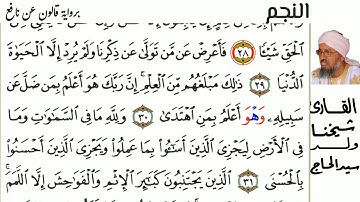 النجم
برواية قالون عن نافع
اِلْحَقِّ شَيْـٔاً ٢٨ فَأَعْرِضْ عَن مَّن تَوَلَّىٰ عَن ذِكْرِنَا وَلَمْ يُرِدْ إِلَّا اَلْحَيَوٰةَ
اَلدُّنْيَا ٢٩ ذَٰلِكَ مَبْلَغُهُم مِّنَ اَلْعِلْمِ إِنَّ رَبَّكَ هُوَ أَعْلَمُ بِمَن ضَلَّ عَن
سَبِيلِهِۦ وَهْوَ أَعْلَمُ بِمَنِ اِهْتَدَىٰ ٣٠ وَلِلهِ مَا فِي اِلسَّمَٰوَٰتِ وَمَا
فِي اِلْأَرْضِ لِيَجْزِيَ اَلَّذِينَ أَسَٰٓـُٔواْ بِمَا عَمِلُواْ وَيَجْزِيَ اَلَّذِينَ أَحْسَنُواْ
بِالْحُسْنَى ٣١ اَلَّذِينَ يَجْتَنِبُونَ كَبَٰٓئِرَ اَلْإِثْمِ وَالْفَوَٰحِشَ إِلَّا اَللَّمَمَ
القارئ
شيخنا
ولد
سيدالحاج